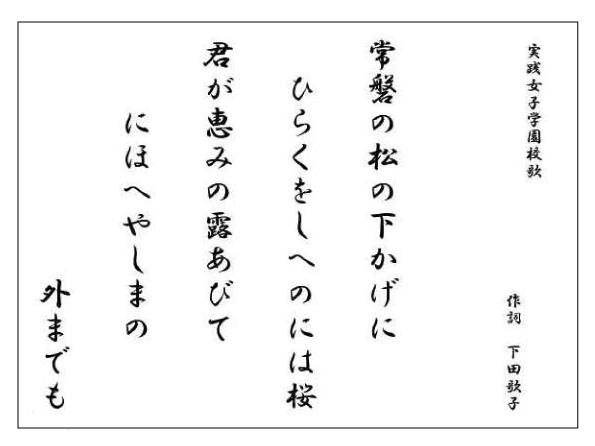 実践女子学園校歌
作詞 下田歌子
常磐の松の下かげに
ひらくをしへのには桜
君が恵みの露あびて
にほへやしまの
外までも